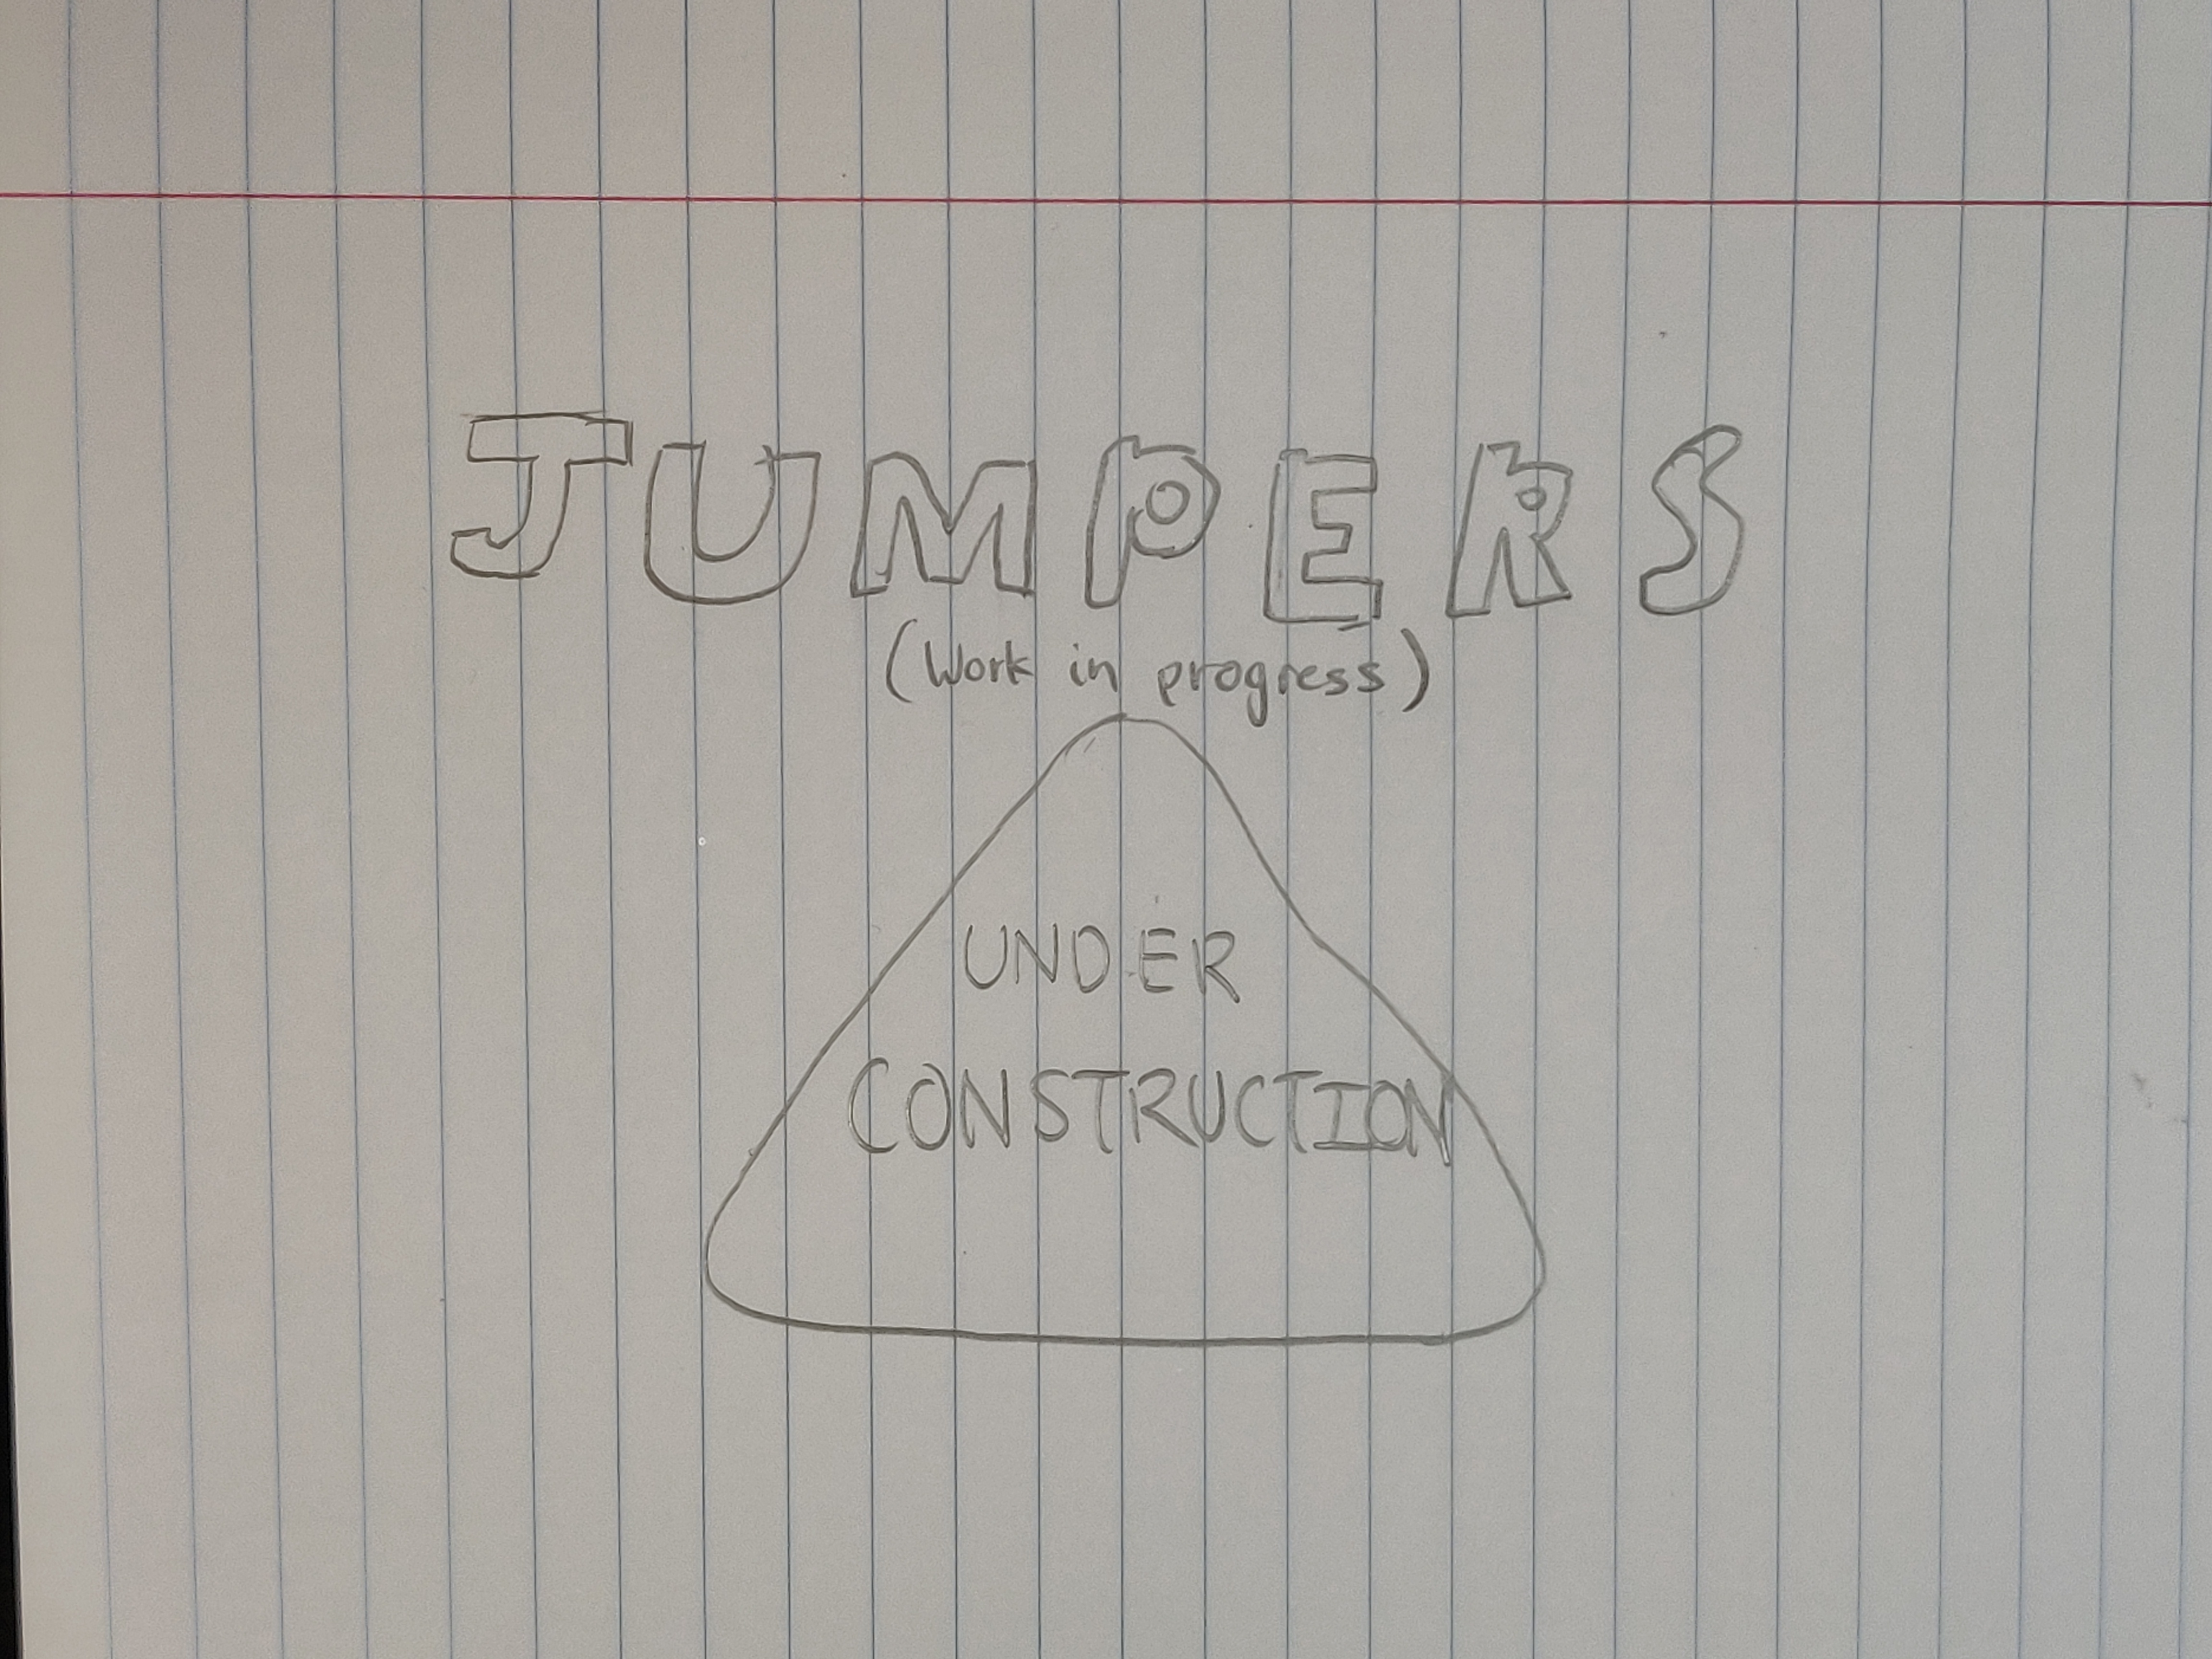 JUMPERS
(Work in progress)
UNDER
CONSTRUCTION